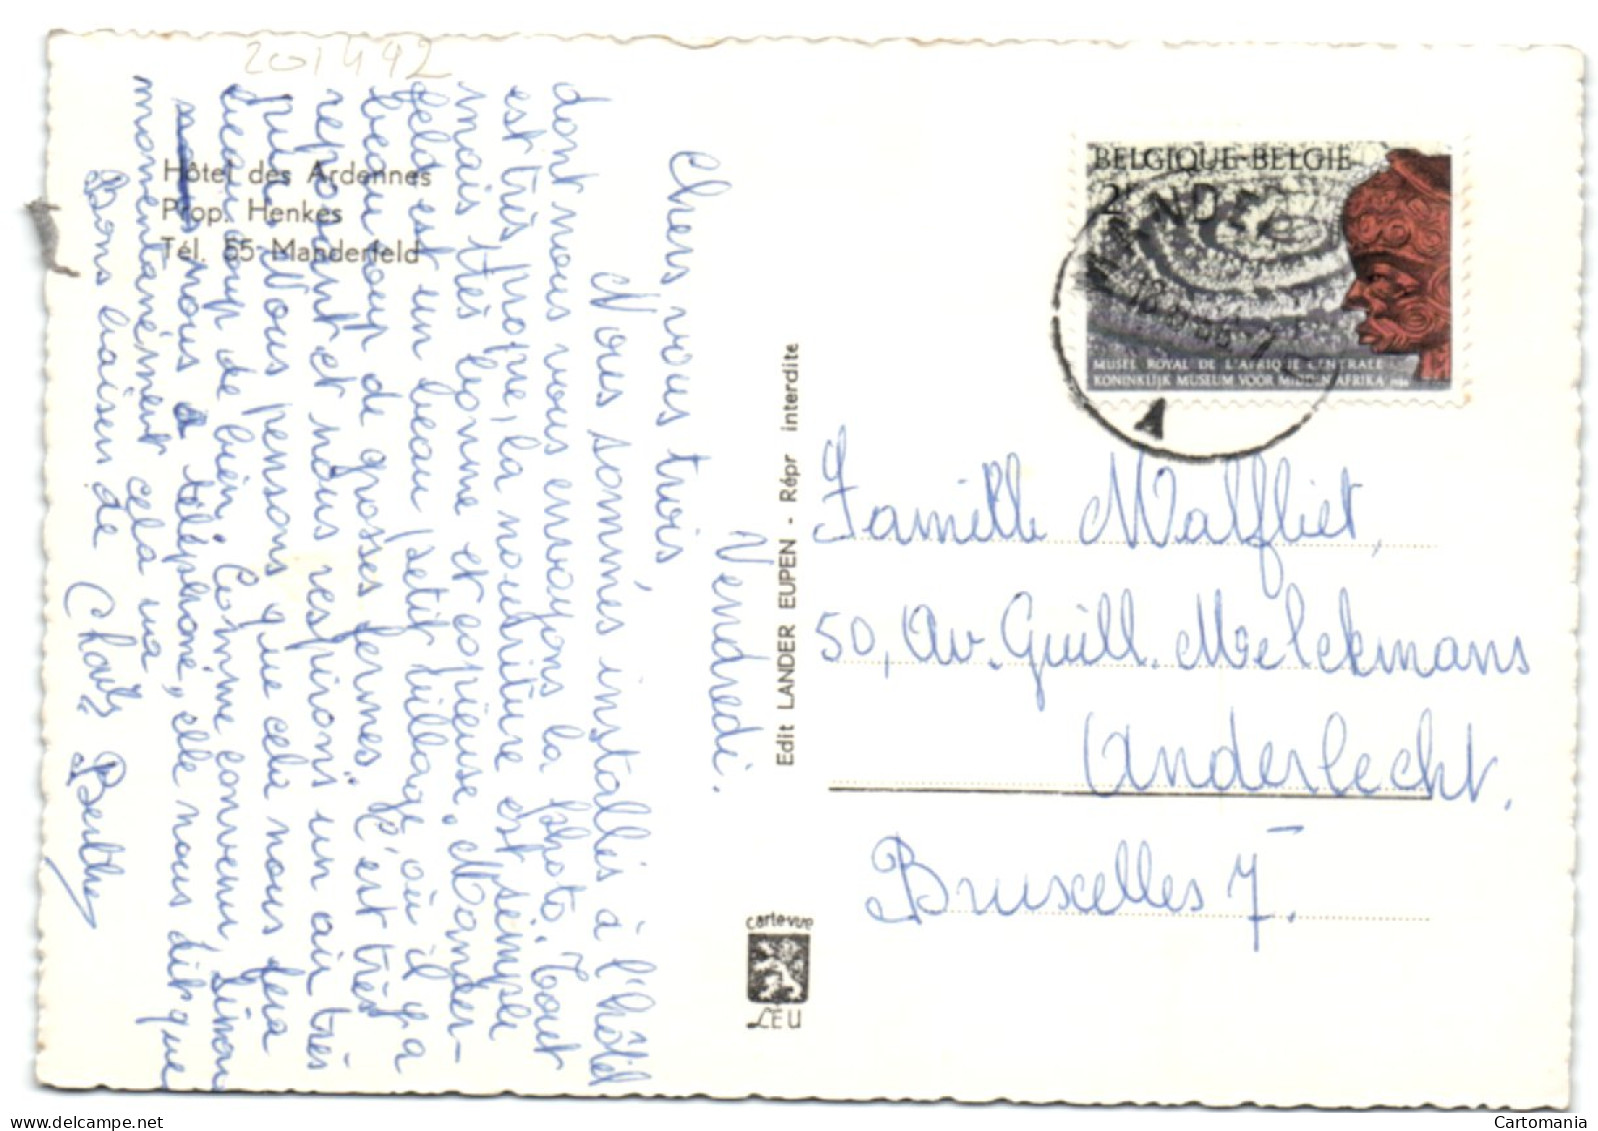 201492
Hôtel des Ardennes
Prop. Henkes
Tél. 55 Manderfeld
Vendredi.
Chers vous trois
Nous sommes installés à l'hôtel
dont nous vous envoyons la photo. Tout
est très propre, la nourriture est simple
mais très bonne et copieuse. Mander-
feld est un beau petit village, où il y a
beaucoup de grosses fermes. C'est très
reposant et nous respirons un air très
pur. Nous pensons que cela nous fera
beaucoup de bien. Comme convenu Simon
nous a téléphoné, elle nous dit que
momentanément cela va
Bons baisers de
Charly Berthy
Edit LANDER EUPEN - Répr interdite
carte-vue
LEU
BELGIQUE-BELGIE
2F
MUSEE ROYAL DE L'AFRIQUE CENTRALE
KONINKLIJK MUSEUM VOOR MIDDEN AFRIKA
MANDE
A
Famille Walfliet,
50, Av. Guill. Melckmans
Anderlecht,
Bruxelles 7.
Cartomania
www.delcampe.net